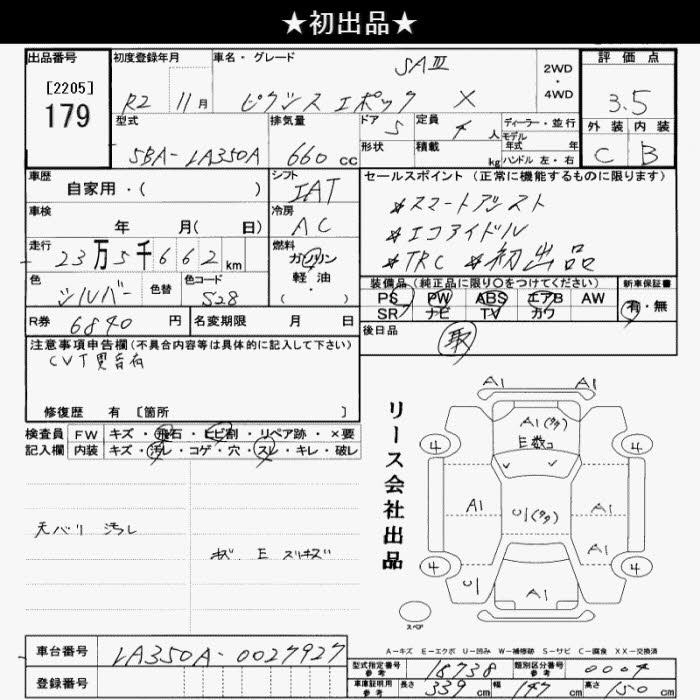 ★初出品★
出品番号 初度登録年月 車名・グレード 評価点
[2205] SAⅢ 2WD
179 R2 11月 ピクシス エポック X ・ 4WD 3.5
型式 排気量 ドア 5 定員 4 人 ディーラー・並行 外装 内装
モデル
年式 年
5BA-LA350A 660 cc 形状 積載 kg ハンドル 左・右 C B
車歴 シフト セールスポイント(正常に機能するものに限ります)
自家用・( ) IAT ☆スマートアシスト
車検 冷房 ☆エコアイドル
年 月( 日) AC ☆TRC ☆初出品
走行 燃料
23万5千662km ガソリン
軽油
・
( )
色 色替 色コード 装備品(純正品に限り○をつけてください) 新車保証書
シルバー S28 PS PW ABS エアB AW 有・無
SR ナビ TV カワ
R券 6840 円 名変期限 月 日 後日品
取
注意事項申告欄(不具合内容等は具体的に記入して下さい)
CVT異音有
修復歴 有 [箇所 ]
検査員 FW キズ・飛石・ヒビ割・リペア跡・×要
記入欄 内装 キズ・汚レ・コゲ・穴・スレ・キレ・破レ
天バリ 汚レ
キズ E スリキズ
リース会社出品
A1 A1
A1(タタ)
E数コ
4 4
A1 U1(タタ) A1
A1
4 4
U1 A1
スペア
A1
A－キズ E－エクボ U－凹み W－補修跡 S－サビ C－腐食 XX－交換済
車台番号 LA350A-0027927
登録番号
型式指定番号 参考 18738 類別区分番号 参考 0004
車庫証明用 参考 長さ 339 cm 幅 147 cm 高さ 150 cm